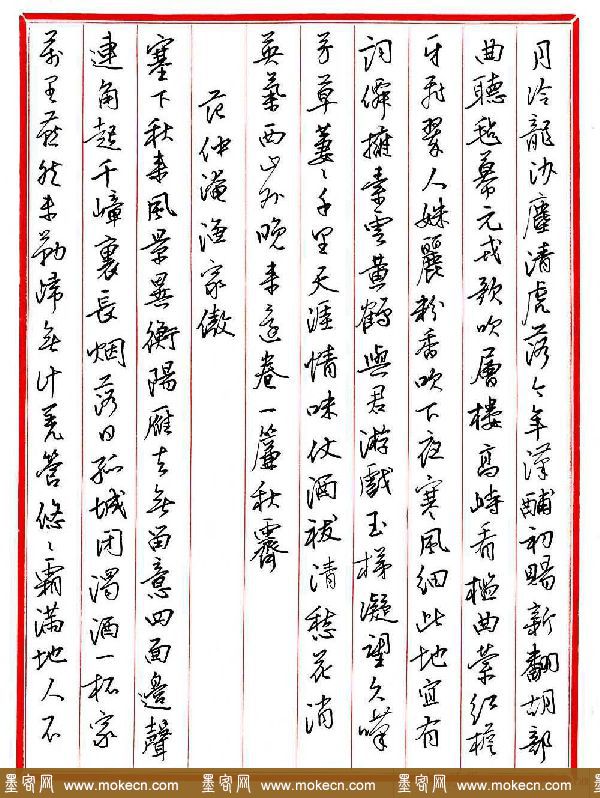 月冷龍沙塵清虎落今年漢酺初賜新翻胡部
曲聽氈幕元戎歌吹層樓高峙看檻曲縈紅檐
牙飛翠人姝麗粉香吹下夜寒風細此地宜有
詞僊擁素雲黃鶴與君游戲玉梯凝望久嘆
芳草萋々千里天涯情味仗酒祓清愁花消
英氣西山外晚來還卷一簾秋霽
范仲淹漁家傲
塞下秋來風景異衡陽雁去無留意四面邊聲
連角起千嶂裏長烟落日孤城闭濁酒一杯家
萬里燕然未勒歸無計羌管悠々霜滿地人不
墨客网 www.mokecn.com 墨客网 www.mokecn.com 墨客网 www.mokecn.com